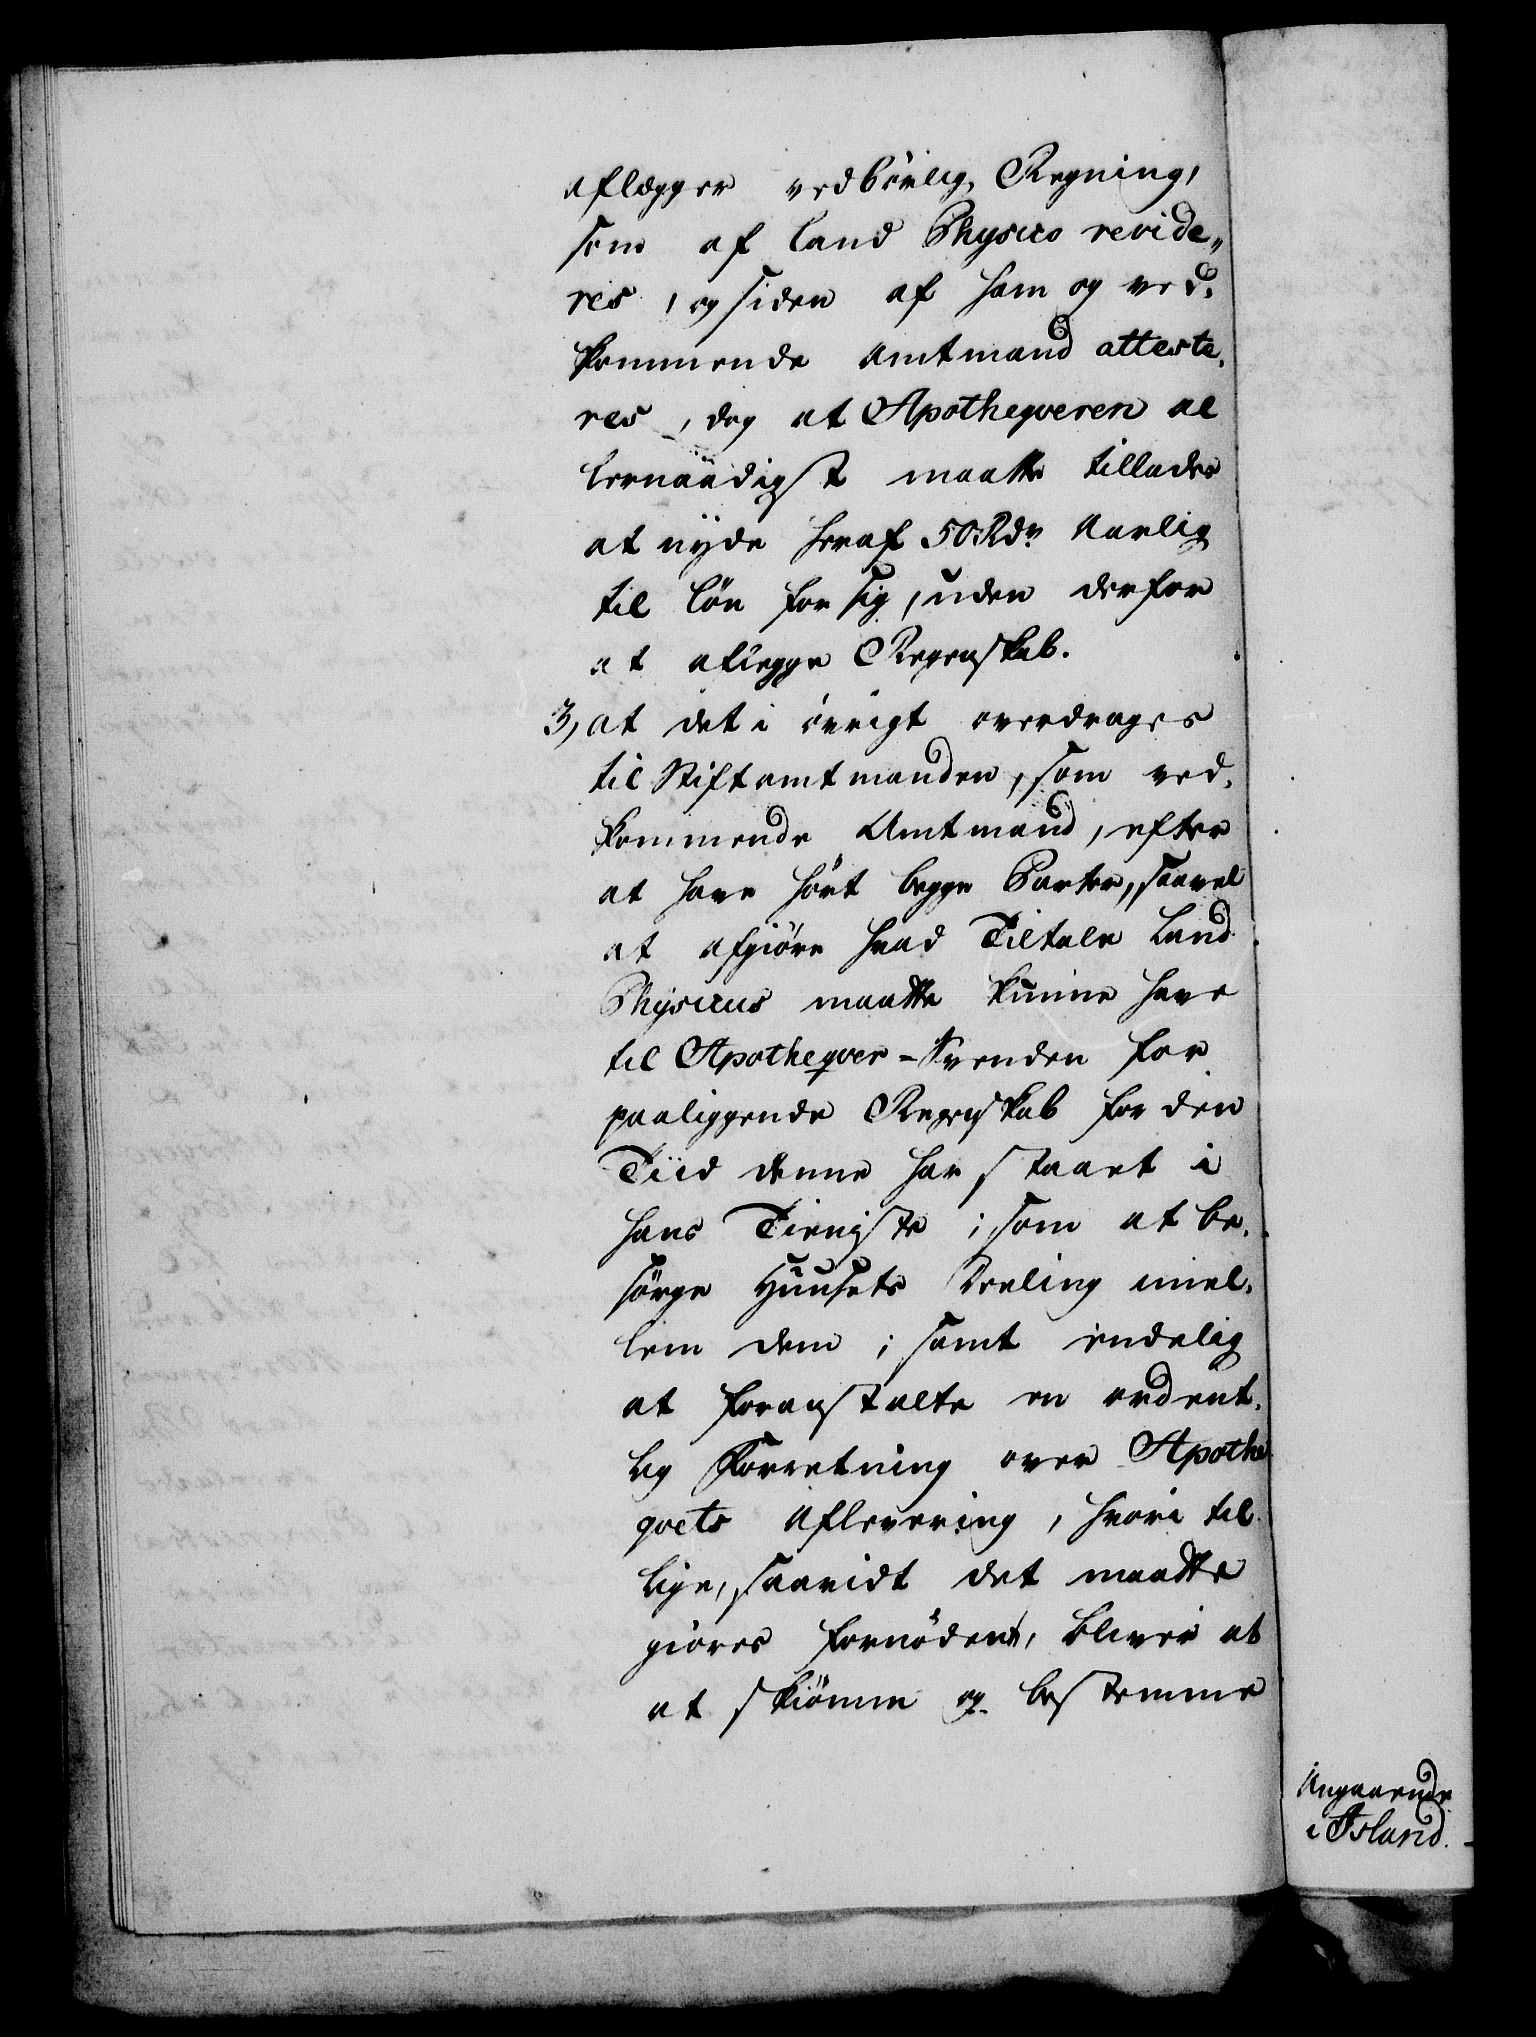 aflægger vedbørlig Regning,
som af Land Physico revide„
res, og siden af ham og ved,
kommende Amtmand atteste,
res, dog at Apotheqveren al
lernaadigst maatte tillades
at nyde heraf 50 Rdr Aarlig
til Løn for sig, uden derfor
at aflegge Regenskab.
3, at det i øvrigt overdrages
til Stiftamtmanden, som ved,
kommende Amtmand, efter
at have hørt begge Parter, saavel
at afgiøre hvad Tiltale Land
Physicus maatte kunne have
til Apotheqver-Svenden for
paaliggende Regenskab for den
Tiid denne har staaet i
hans Tieniste; som at be,
sørge Huusets Deeling imel,
lem dem; samt endelig
at foranstalte en ordent,
lig Forretning over Apothe
qvets Aflevering, hvori til
lige, saavidt det maatte
giøres fornødent, bliver at
at skiønne og bestemme
Angaaende
i Island.